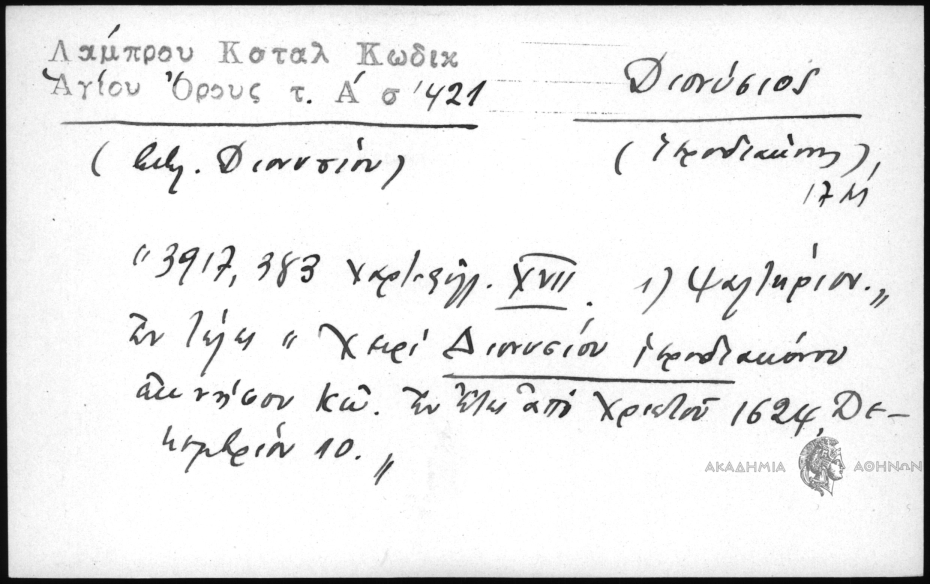 Λάμπρου Καταλ Κωδικ
Ἁγίου Ὄρους τ. Ά σ 421
Διονύσιος
(βιβλ. Διονυσίου)
(ἱεροδιάκονος),
17 αἰ
"3917, 383 χαρτ. φύλλ. XVII. 1) Ψαλτήριον."
Ἐν τέλει " Χειρὶ Διονυσίου ἱεροδιακόνου
ἐκ νήσου Κῶ. Ἐν ἔτει ἀπὸ Χριστοῦ 1624, Δε-
κεμβρίου 10."
ΑΚΑΔΗΜΙΑ ΑΘΗΝΩΝ